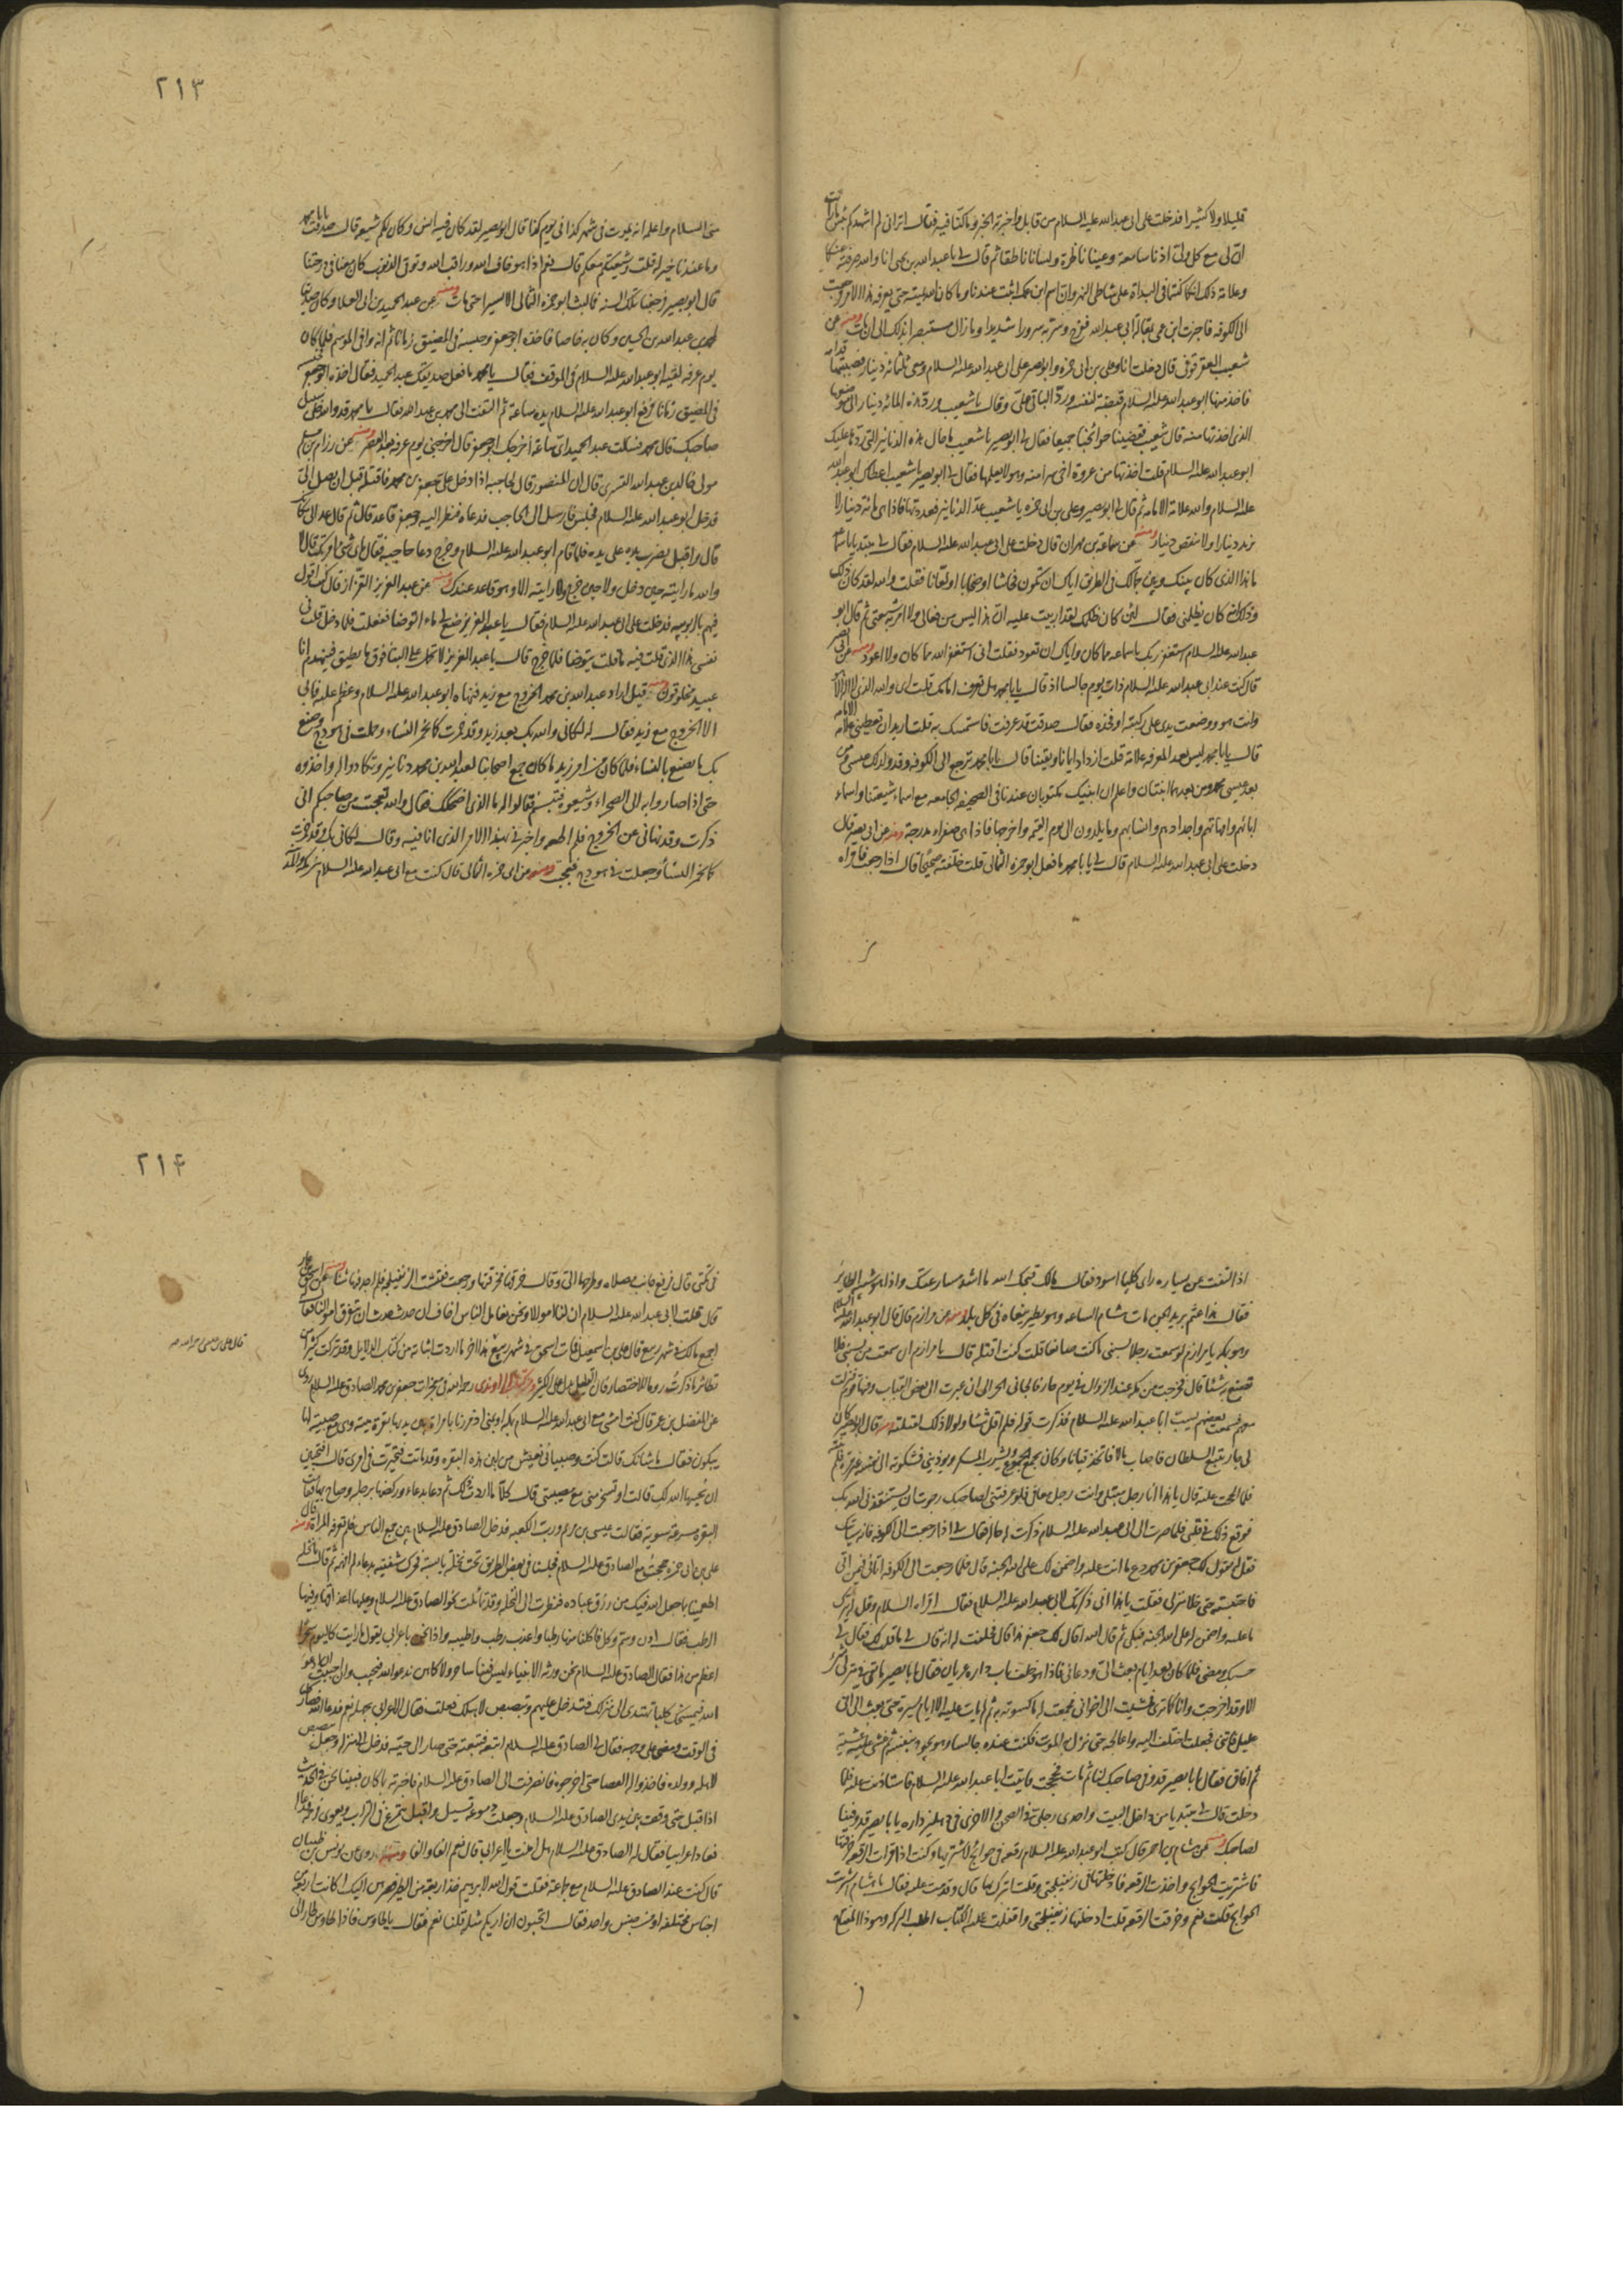 قليلا ولا كثيرا فدخلت على ابى عبدالله عليه السلام من قابل واخبرته الخبر وما كنا فيه فقال اترانى لم اشهدكم بئس ما رايت
ان لى مع كل ولى اذنا سامعة وعينا ناظرة ولسانا ناطقا ثم قال لى يا عبدالله بن يحيى انا والله صرفته عنكما
وعلامة ذلك انكما كنتما فى البداة على شاطى النهر وان اسم ابن عمك اثبت عندنا وما كان الله ليميته حتى يعرفه هذا الامر فرجعت
الى الكوفه فاخبرت ابن عمى بمقالة ابى عبدالله ففرح وسر به سرورا شديدا وما زال مستبصرا بذلك الى ان مات ومنه عن
شعيب العقرقوفى قال دخلت انا وعلى بن ابى حمزه وابو بصير على ابى عبدالله عليه السلام ومعى ثلثمائه دينار فصببتها قدامه
فاخذ منها ابو عبدالله عليه السلام قبضة لنفسه ورد الباقى على وقال يا شعيب رد هذه المائه دينار الى موضعها
الذى اخذتها منه قال شعيب فقضينا حوائجنا جميعا فقال لى ابو بصير يا شعيب ما حال هذه الدنانير التى ردها عليك
ابو عبدالله عليه السلام قلت اخذتها من عروة اخى سرا منه وهو لا يعلمها فقال لى ابو بصير يا شعيب اعطاك ابو عبدالله
عليه السلام والله علامة الامامه ثم قال لى ابو بصير وعلى بن ابى حمزه يا شعيب عد الدنانير فعددتها فاذا هى مائة دينار لا
تزيد دينارا ولا تنقص دينارا ومنه عن سماعة بن مهران قال دخلت على ابى عبدالله عليه السلام فقال لى مبتديا يا سماعه
ما هذا الذى كان بينك وبين جمالك فى الطريق اياك ان تكون فحاشا او صخابا او لعانا فقلت والله لقد كان ذلك
وذلك انه كان يظلمنى فقال لئن كان ظلمك لقد اربيت عليه ان هذا ليس من فعالى ولا امر به شيعتى ثم قال ابو
عبدالله عليه السلام استغفر ربك يا سماعه مما كان واياك ان تعود فقلت انى استغفر الله مما كان ولا اعود ومنه عن ابى بصير
قال كنت عند ابى عبدالله عليه السلام ذات يوم جالسا اذ قال يا با محمد هل تعرف امامك قلت اى والله الذى لا اله الا هو
وانت هو ووضعت يدى على ركبته او فخذه فقال صدقت قد عرفت فاستمسك به قلت اريد ان تعطينى علامة الامامه
قال يا با محمد ليس بعد المعرفه علامة قلت ازداد ايمانا ويقينا قال يا با محمد ترجع الى الكوفه وقد ولد لك عيسى ومن
بعد عيسى محمد ومن بعدهما ابنتان واعلم ان ابنيك مكتوبان عندنا فى الصحيفه الجامعه مع اسماء شيعتنا واسماء
ابائهم وامهاتهم واجدادهم وانسابهم وما يلدون الى يوم القيمه واخرجها فاذا هى صفراء مدرجة ومنه عن ابى بصير قال
دخلت على ابى عبدالله عليه السلام قال لى يا با محمد ما فعل ابو حمزه الثمالى قلت خلفته صحيحا قال اذا رجعت فاقراه
٢١٣
منى السلام واعلمه انه يموت فى شهر كذا فى يوم كذا قال ابو بصير لقد كان فيه انس وكان لكم شيعه قال صدقت يا با محمد
وما عندنا خير له قلت وشيعتكم معكم قال نعم اذا هو خاف الله وراقب الله وتوقى الذنوب كان معنا فى درجتنا
قال ابو بصير فرجعنا تلك السنه فما لبث ابو حمزه الثمالى الا يسيرا حتى مات ومنه عن عبد الحميد بن ابى العلا وكان صديقا
لمحمد بن عبدالله بن الحسين وكان به خاصا فاخذه ابو جعفر وحبسه فى المضيق زمانا ثم انه وافى الموسم فلما كان
يوم عرفه لقيه ابو عبدالله عليه السلام فى الموقف فقال يا محمد ما فعل صديقك عبد الحميد فقال اخذه ابو جعفر فحبسه
فى المضيق زمانا فرفع ابو عبدالله عليه السلام يده ساعة ثم التفت الى محمد بن عبدالله فقال يا محمد قد والله خلى سبيل
صاحبك قال محمد فسئلت عبد الحميد اى ساعة اخرجك ابو جعفر قال اخرجنى يوم عرفه بعد العصر ومنه عن رزام بن مسلم
مولى خالد بن عبدالله القسرى قال ان المنصور قال لحاجبه اذا دخل على جعفر بن محمد فاقتله قبل ان يصل الى
فدخل ابو عبدالله عليه السلام فجلس فارسل الى الحاجب فدعاه فنظر اليه وجعفر قاعد قال ثم قال عد الى مكانك
قال واقبل يضرب يده على يده فلما قام ابو عبدالله عليه السلام وخرج دعا حاجبه فقال باى شئ امرتك قال لا
والله ما رايته حين دخل ولا حين خرج ولا رايته الا وهو قاعد عندك ومنه عن عبد العزيز القزاز قال كنت اقول
فيهم بالربوبيه فدخلت على ابى عبدالله عليه السلام فقال يا عبد العزيز ضع لى ماء اتوضا ففعلت فلما دخل قلت فى
نفسى هذا الذى قلت فيه ما قلت يتوضا فلما خرج قال يا عبد العزيز لا تحمل على البنا فوق ما يطيق فينهدم انا
عبيد مخلوقون ومنه قيل اراد عبدالله بن محمد الخروج مع زيد فنهاه ابو عبدالله عليه السلام وعظم عليه فابى
الا الخروج مع زيد فقال له لكانى والله بك بعد زيد وقد خمرت كما تخمر النساء وحملت فى هودج وصنع
بك ما يصنع بالنساء فلما كان من امر زيد ما كان جمع اصحابنا لعبدالله بن محمد دنانير وتكاروا له واخذوه
حتى اذا صاروا به الى الصحراء وشيعوه فتبسم فقالوا له ما الذى اضحكك فقال والله تعجبت من صاحبكم انى
ذكرت وقد نهانى عن الخروج فلم اطعه واخبرنى بهذا الامر الذى انا فيه وقال لكانى بك وقد خمرت
كما تخمر النساء وجعلت فى هودج فعجبت ومنه عن ابى حمزه الثمالى قال كنت مع ابى عبدالله عليه السلام بين مكه والمدينه
اذ التفت عن يساره راى كلبا اسود فقال مالك قبحك الله ما اشد مسارعتك واذا هو شبيه الطاير
فقال هذا عثم بريد الجن مات هشام الساعه وهو يطير ينعاه فى كل بلد ومنه عن مرازم قال قال ابو عبدالله عليه السلام
وهو بمكه يا مرازم لو سمعت رجلا يسبنى ما كنت صانعا قلت كنت اقتله قال يا مرازم ان سمعت من يسبنى فلا
تصنع به شئا قال فخرجت من مكه عند الزوال فى يوم حار فالجانى الحر الى ان عبرت الى بعض القباب وفيها قوم فنزلت
معهم فسمعت بعضهم يسب ابا عبدالله عليه السلام فذكرت قوله فلم اقل شئا ولولا ذلك لقتلته ومنه قال ابو بصير كان
لى جار يتبع السلطان فاصاب مالا فاتخذ قيانا وكان يجمع الجموع ويشرب المسكر ويوذينى فشكوته الى نفسه غير مره فلم ينته
فلما الححت عليه قال يا هذا انا رجل مبتلى وانت رجل معافى فلو عرفتنى لصاحبك رجوت ان يستنقذنى الله بك
فوقع ذلك فى قلبى فلما صرت الى ابى عبدالله عليه السلام ذكرت له حاله فقال لى اذا رجعت الى الكوفه فانه سياتيك
فقل له يقول لك جعفر بن محمد دع ما انت عليه واضمن لك على الله الجنه قال فلما رجعت الى الكوفه اتانى فيمن اتى
فاحتبسته حتى خلا منزلى فقلت يا هذا انى ذكرتك لابى عبدالله عليه السلام فقال اقراه السلام وقل له يترك
ما عليه واضمن له على الله الجنه فبكى ثم قال الله اقال لك جعفر هذا قال فحلفت له انه قال لى ما قلت لك فقال لى
حسبك ومضى فلما كان بعد ايام بعث الى ودعانى فاذا هو خلف باب داره عريان فقال يا با بصير ما بقى فى منزلى شئ
الا وقد اخرجت وانا كما ترى فمشيت الى اخوانى فجمعت له ما كسوته به ثم لم يات عليه الا ايام يسيرة حتى بعث الى انى
عليل فاتنى فجعلت اختلف اليه واعالجه حتى نزل به الموت فكنت عنده جالسا وهو يجود بنفسه ثم غشى عليه غشية
ثم افاق فقال يا با بصير قد وفى صاحبك لنا ثم مات فحججت فاتيت ابا عبدالله عليه السلام فاستاذنت عليه فلما
دخلت قال لى مبتديا من داخل البيت واحدى رجلى فى الصحن والاخرى فى دهليز داره يا با بصير قد وفينا
لصاحبك ومنه عن هشام بن احمر قال كتب ابو عبدالله عليه السلام رقعه فى حوائج لاشتريها وكنت اذا قرات الرقعه خرقتها
فاشتريت الحوائج واخذت الرقعه فادخلتها فى زنفيلجتى وقلت اتبرك بها قال وقدمت عليه فقال يا هشام اشتريت
الحوائج قلت نعم وخرقت الرقعه قلت ادخلتها زنفيلجتى واقفلت عليه الكتاب اطلب البركه وهو ذا المفتاح
٢١۴
فى تكتى قال فرفع جانب مصلاه وطرحها الى وقال خرقها فخرقتها ورجعت ففتشت الزنفيلجه فلم اجد فيها شئا ومنه عن اسحق بن عمار
قال قلت لابى عبدالله عليه السلام ان لنا اموالا ونحن نعامل الناس اخاف ان حدث حدث ان تتفرق اموالنا فقال
اجمع مالك فى شهر ربيع قال على بن اسمعيل فمات اسحق فى شهر ربيع هذا اخر ما اردت اثباته من كتاب الدلايل وقد تركت كثيرا من
نظائر ما ذكرت روما للاختصار فان القليل يدل على الكثير
عن المفضل بن عمر قال كنت امشى مع ابى عبدالله عليه السلام بمكه او بمنى اذ مررنا بامراة بين يديها بقره ميتة وهى مع صبية لها
يبكون فقال ما شانك قالت كنت وصبيانى نعيش من لبن هذه البقره وقد ماتت فتحيرت فى امرى قال افتحبين
ان يحييها الله لك قالت او تسخر منى مع مصيبتى قال كلا ما اردت ذلك ثم دعا بدعاء وركضها برجله وصاح بها فقامت
البقره مسرعة سوية فقالت عيسى بن مريم ورب الكعبه فدخل الصادق عليه السلام بين جمع الناس فلم تعرفه المراة ومنه قال
على بن ابى حمزه حججت مع الصادق عليه السلام فجلسنا فى بعض الطريق تحت نخلة يابسة فحرك شفتيه بدعاء لم افهمه ثم قال يا نخله
اطعمينا مما جعل الله فيك من رزق عباده فنظرت الى النخله وقد تمايلت نحو الصادق عليه السلام وعليها اعذاقها وفيها
الرطب فقال ادن وسم وكل فاكلنا منها رطبا اعذب رطب واطيبه واذا نحن باعرابى يقول ما رايت كاليوم سحرا
اعظم من هذا فقال الصادق عليه السلام نحن ورثة الانبياء ليس فينا ساحر ولا كاهن ندعو الله فيجيب وان احببت ان ادعو
الله فيمسخك كلبا تهتدى الى منزلك فتدخل عليهم وتبصبص لاهلك فعلت فقال الاعرابى بجهله نعم فدعا الله فصار كلبا
فى الوقت ومضى على وجهه فقال لى الصادق عليه السلام اتبعه فتبعته حتى صار الى حيه فدخل الى منزله وجعل يبصبص
لاهله وولده فاخذوا له العصا حتى اخرجوه فانصرفت الى الصادق عليه السلام فاخبرته بما كان فبينا نحن فى الحديث
اذ اقبل حتى وقف بين يدى الصادق عليه السلام وجعلت دموعه تسيل واقبل يتمرغ فى التراب ويعوى فرحمه فدعا الله
فعاد اعرابيا فقال له الصادق عليه السلام هل امنت يا اعرابى قال نعم الفا والفا ومنه روى عن يونس بن ظبيان
قال كنت عند الصادق عليه السلام مع جماعة فقلت قول الله لابرهيم فخذ اربعة من الطير فصرهن اليك اكانت اربعة من
اجناس مختلفه او من جنس واحد فقال اتحبون ان اريكم مثله قلنا نعم فقال يا طاوس فاذا طاوس طار الى